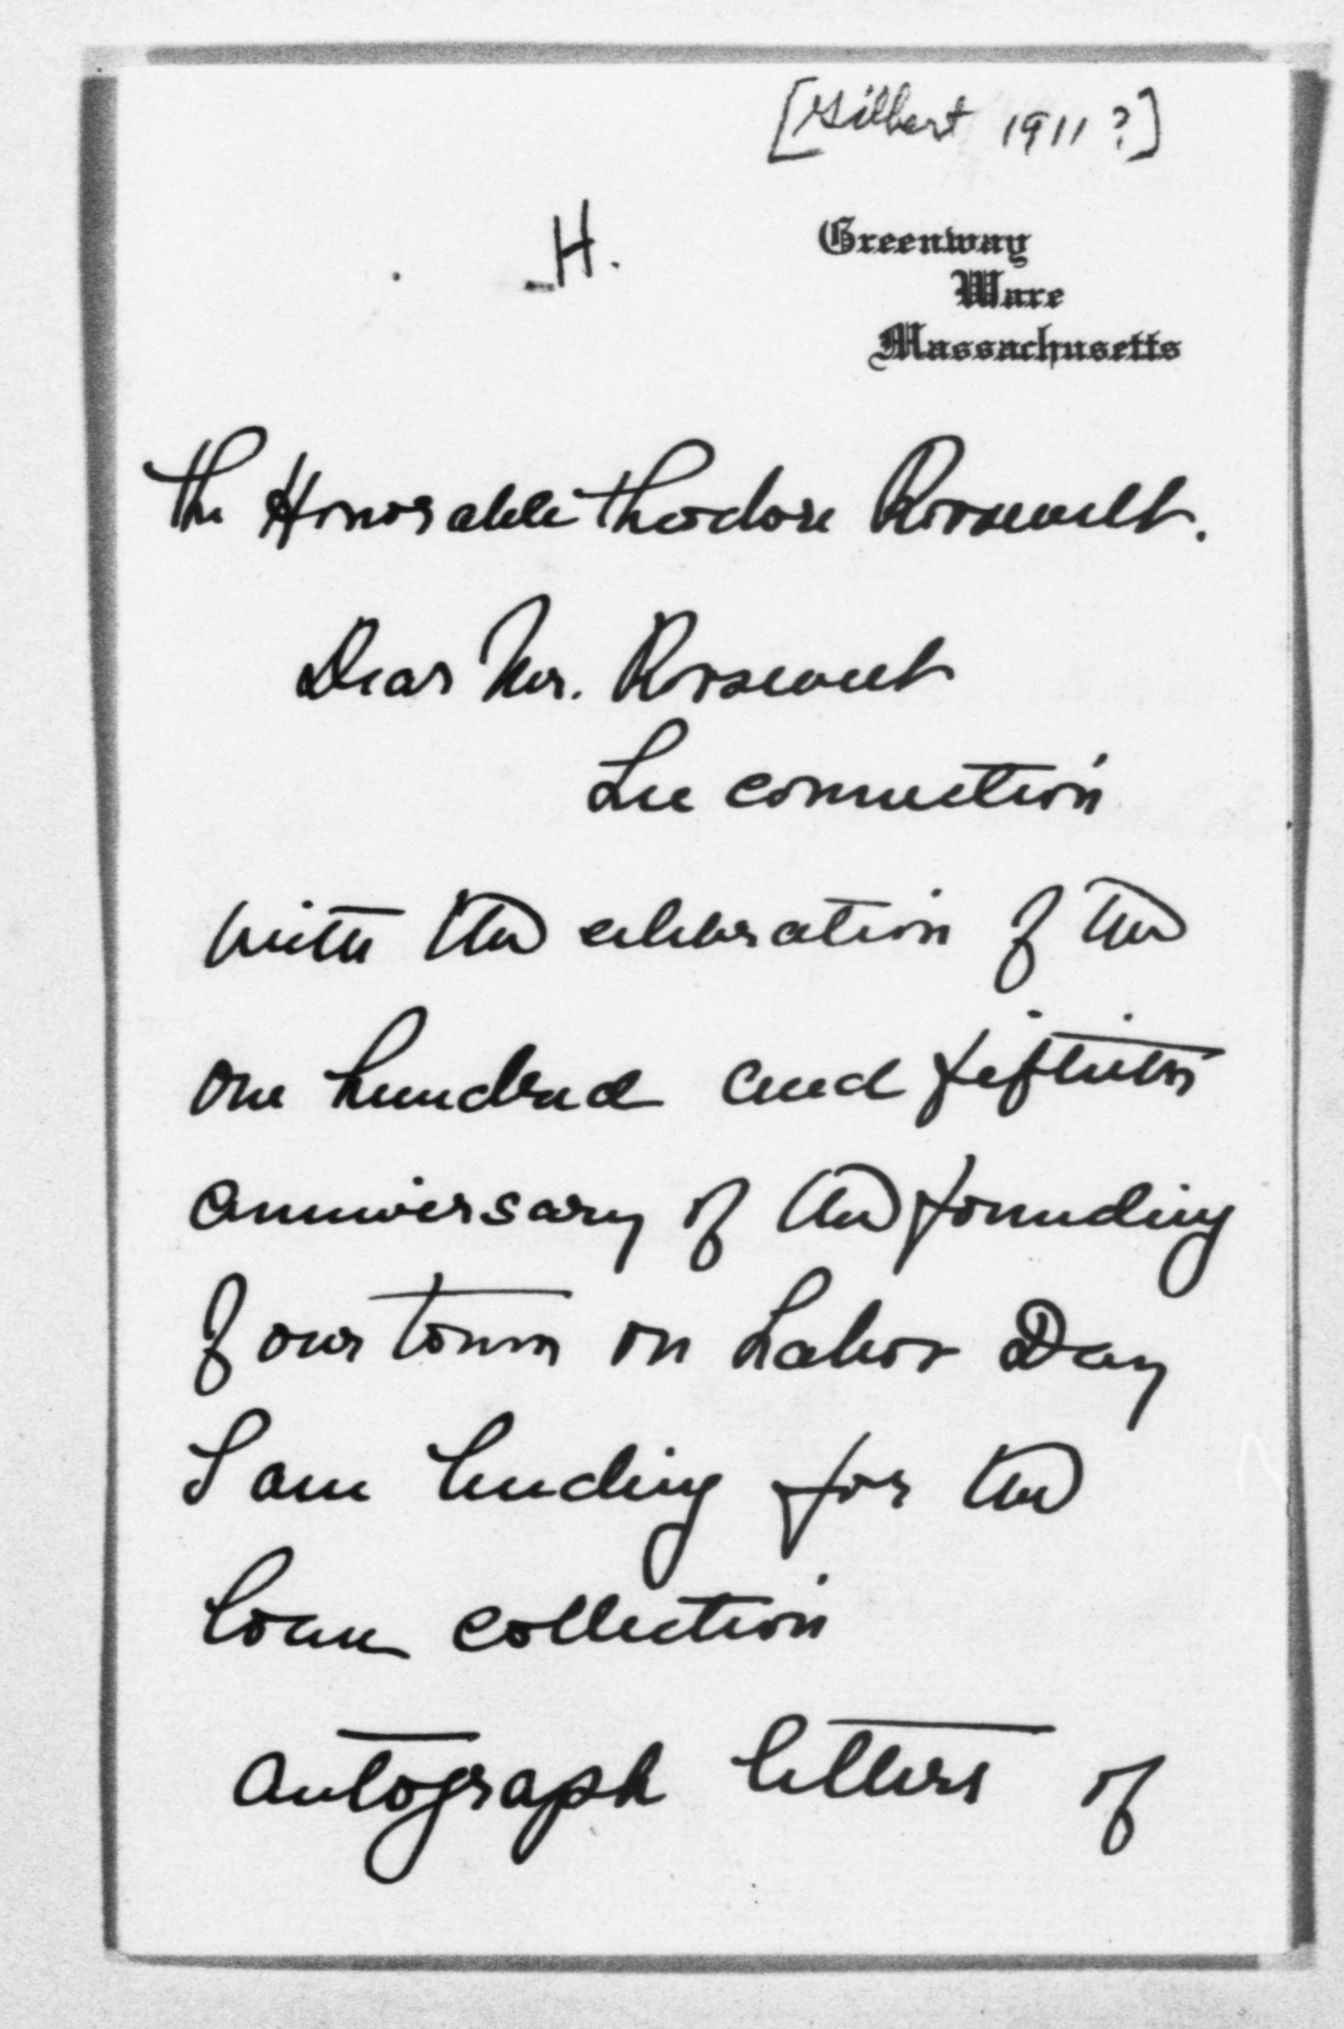 [Gilbert 1911?]
H.
Greenway
Ware
Massachusetts
The Honorable Theodore Roosevelt.
Dear Mr. Roosevelt
In connection
with the celebration of the
one hundred and fiftieth
anniversary of the founding
of our town on Labor Day
I am lending for the
loan collection
autograph letters of